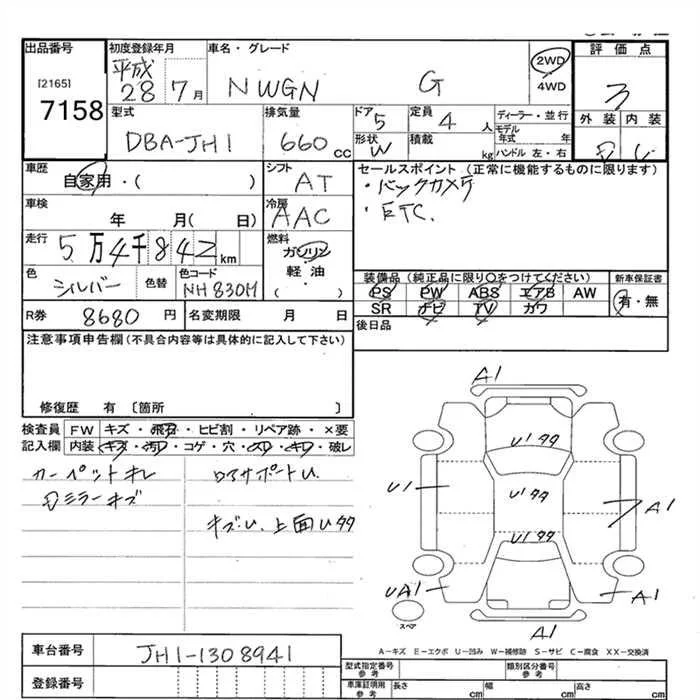 出品番号
[2165]
7158
初度登録年月
平成
28 7月
車名・グレード
NWGN G
2WD
4WD
評価点
3
外装 内装
型式
DBA-JH1
排気量
660cc
ドア
5
形状
W
定員
4人
積載 kg
ディーラー・並行
モデル年式 年
ハンドル 左・右
車歴
自家用・( )
シフト
AT
セールスポイント(正常に機能するものに限ります)
・バックカメラ
・ETC.
車検
年 月( 日)
冷房
AAC
走行
5万4千842km
燃料
ガソリン
軽油
( )
色
シルバー
色替
色コード
NH830M
装備品(純正品に限り〇をつけてください)
PS PW ABS エアB AW
SR ナビ TV カワ
新車保証書
有・無
R券 8680円
名変期限 月 日
後日品
注意事項申告欄(不具合内容等は具体的に記入して下さい)
修復歴 有〔箇所 〕
検査員
記入欄
FW キズ・飛石・ヒビ割・リペア跡・×要
内装 キズ・汚れ・コゲ・穴・スレ・キレ・破レ
カーペットキレ
ミラーキズ
キズU、上面U
A1
U1
U1
U1
U1
A1
UA1
A1
A1
スペア
A-キズ E-エクボ U-凹み W-補修跡 S-サビ C-腐食 XX-交換済
車台番号
JH1-1308941
登録番号
型式指定番号
参考
類別区分番号
参考
車庫証明用
参考
長さ cm 幅 cm 高さ cm